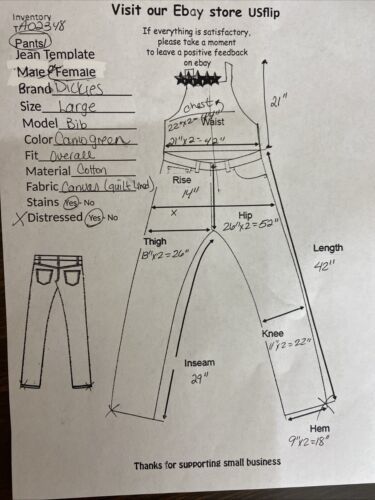 Visit our Ebay store USflip
If everything is satisfactory,
please take a moment
to leave a positive feedback
on ebay
Inventory
Pants/
Jean Template
Male or Female
Brand Dickies
Size Large
Model Bib
Color Camo green
Fit overall
Material Cotton
Fabric Canvas (quilt lined)
Stains Yes - No
X Distressed Yes - No
21"
chest
22"x2=44"
Waist
21"x2=42"
Rise
14"
X
Hip
26"x2=52"
Thigh
13"x2=26"
Length
42"
Knee
11"x2=22"
Inseam
29"
Hem
9"x2=18"
Thanks for supporting small business